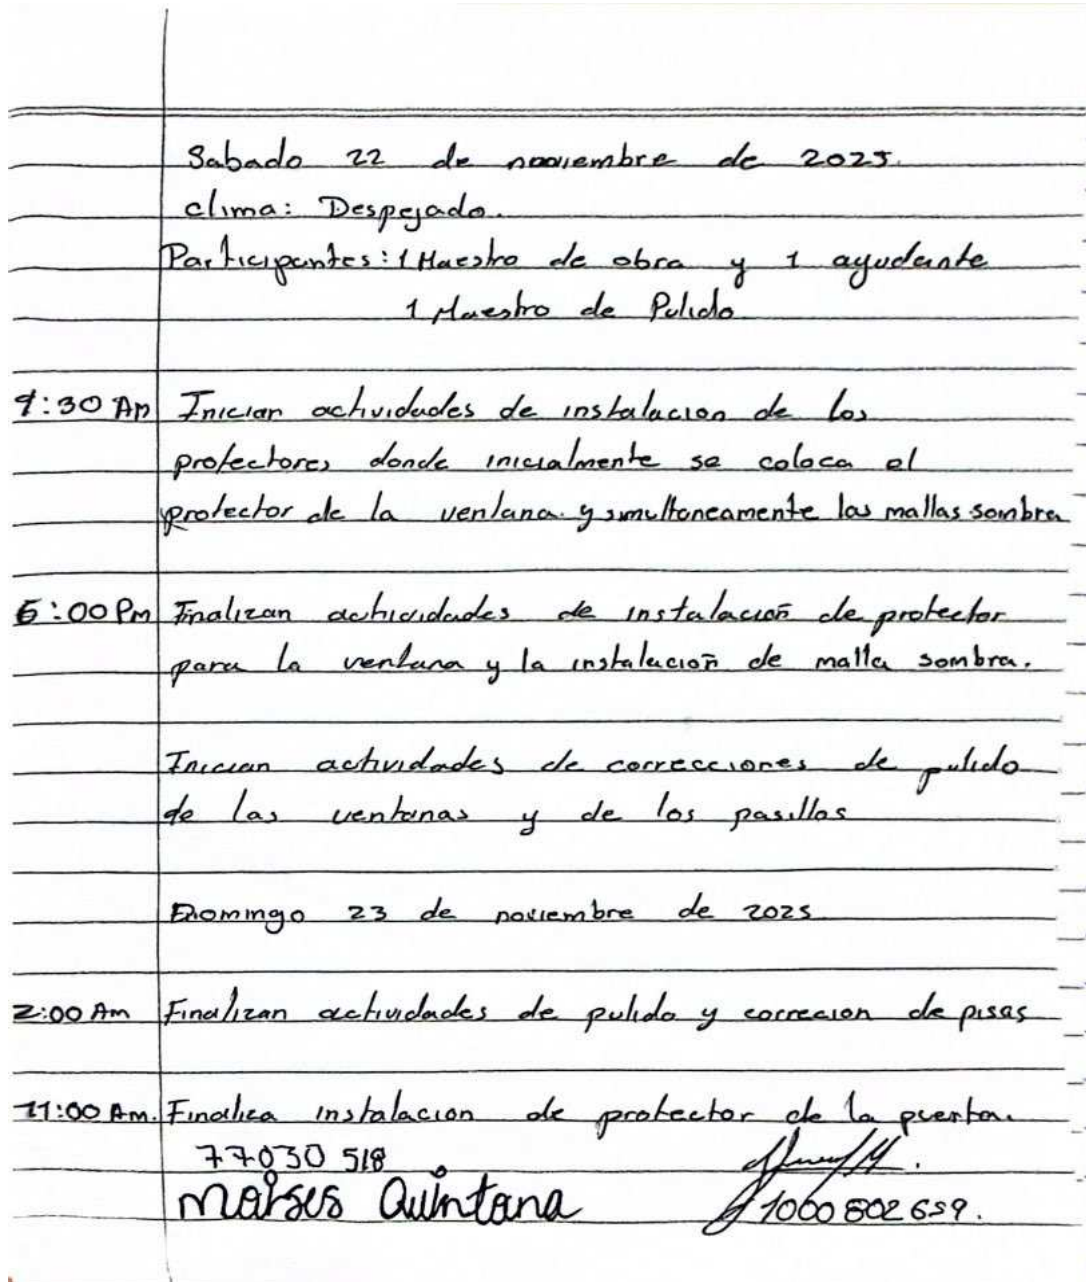 Sabado 22 de noviembre de 2025.
clima: Despejado.
Participantes: 1 Maestro de obra y 1 ayudante
1 Maestro de Pulido
9:30 Am Inician actividades de instalacion de los
protectores donde inicialmente se coloca el
protector de la ventana y simultaneamente las mallas sombra
6:00 Pm Finalizan actividades de instalación de protector
para la ventana y la instalación de malla sombra.
Inician actividades de correcciones de pulido
de las ventanas y de los pasillos
Domingo 23 de noviembre de 2025
2:00 Am Finalizan actividades de pulido y correcion de pisos
11:00 Am. Finaliza instalacion de protector de la puerta.
77030 518
Moises Quintana
1000802659.